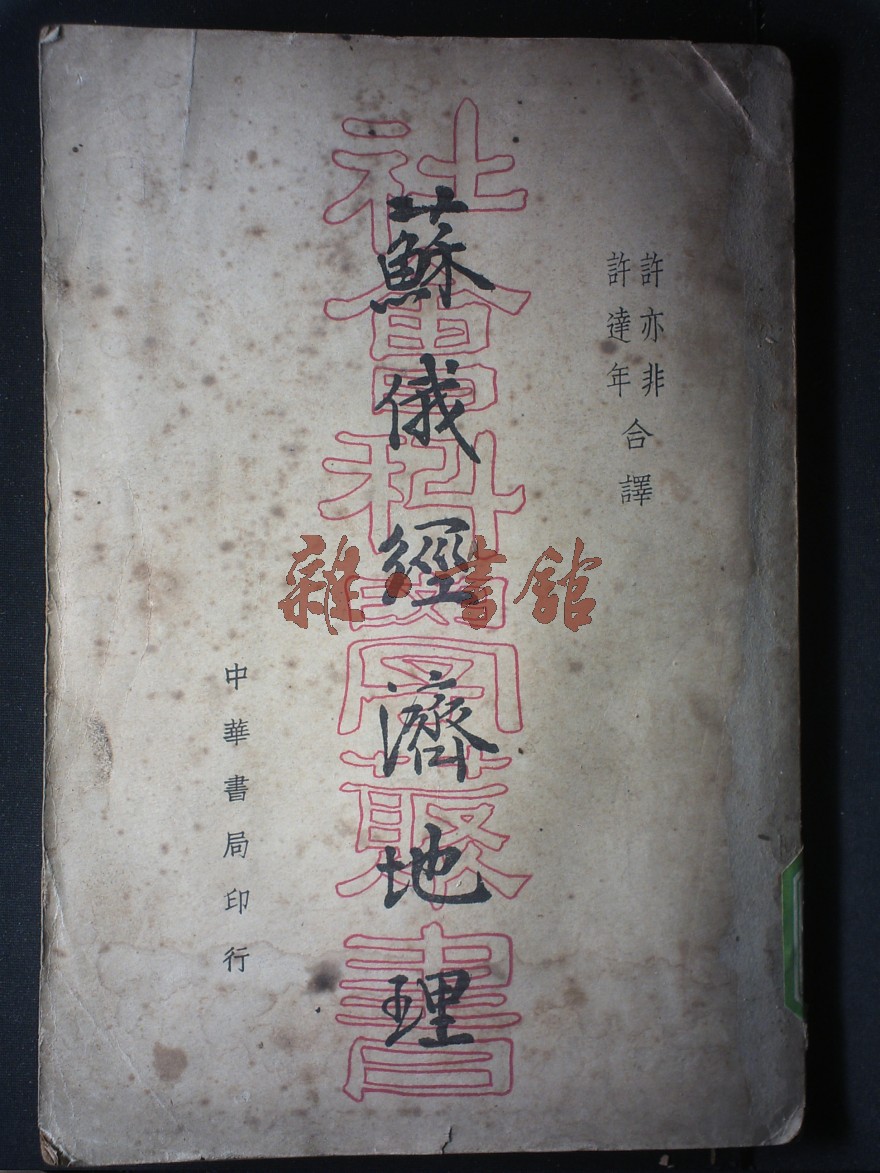 許亦非
許達年
合譯
蘇俄經濟地理
社會科學藂書
中華書局印行
雜·書館